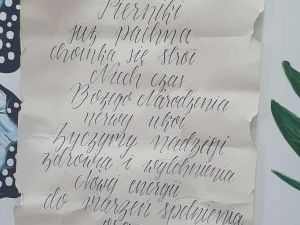 Pierniki
już pachną
choinka się stroi
Niech czas
Bożego Narodzenia
nerwy ukoi
Życzymy nadziei
zdrowia i wyciszenia
Nowej energii
do marzeń spełnienia